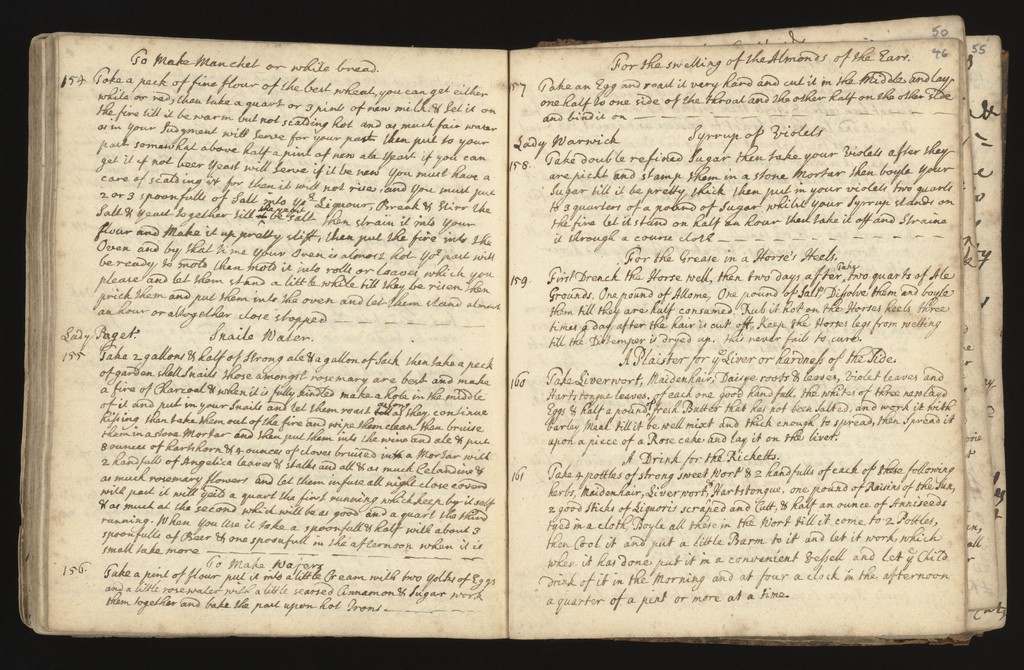 To Make Manchet or white bread.
154. Take a peck of fine flour of the best wheat, you can get either
white or red, then take a quart or 3 pint of new milk & Set it on
the fire till it be warm but not scalding hot and as much fair water
as in your Judgment will serve for your past, then put to your
past somewhat above half a pint of new ale yeast if you can
get it if not beer yeast will serve if it be new you must have a
care of scalding it for then it will not rise, and you must put
2 or 3 spoonfulls of Salt into ye Liquour, Break & Stirr the
Salt & yeast together till the salt then strain it into your
flour and Make it up pretty stiff, then put the fire into the
Oven and by that time your Oven is almost hot yor past will
be ready to mold then mold it into rolls or loaves which you
please and let them stand a little while till they be risen then
prick them and put them into the oven and let them stand almost
an hour or altogether close stopped
Lady Paget. Snaile Water.
155 Take 2 gallons & half of strong ale & a gallon of Sack then take a peck
of garden shell Snails those amongst rosemary are best and make
a fire of Charcoal & when it is fully kindled make a hole in the middle
of it and put in your Snails and let them roast as long as they continue
hissing then take them out of the fire and wipe them clean then bruise
them in a stone Mortar and then put them into the wine and ale & put
8 ounces of hartshorn & 4 ounces of cloves bruised in a Mortar with
2 handfull of Angelica leaves & stalks and all & as much Celandine &
as much rosemary flowers and let them infuse all night close coverd
with past it will yeild a quart the first running which keep by it self
& as much at the second which will be as good and a quart the third
running. When you Use it take a spoonfull & half with about 3
spoonfulls of Beer & one spoonfull in the afternoon when it is
small take more
To Make Wafers
156. Take a pint of flour put it into a little Cream with two yolks of Eggs
and a little rosewater with a little searsed Cinnamon & Sugar work
them together and bake the past upon hot Irons
50
46
For the swelling of the Almonds of the Ears.
157 Take an Egg and roast it very hard and cut it in the Middle and lay
one half to one side of the throat and the other half on the other side
and bind it on
Lady Warwick Syrrup of Violets
158. Take double refined Sugar then take your Violets after they
are pickt and stamp them in a stone Mortar then boyle your
Sugar till it be pretty thick then put in your violets two quarts
to 3 quarters of a pound of Sugar whilst your Syrrup stands on
the fire let it stand on half an hour then take it off and Straine
it through a course cloth
For the Grease in a Horse's Heels.
159 First Drench the Horse well, then two days after, Take two quarts of Ale
Grounds, One pound of Allome, One pound of Salt, Disolve them and boyle
them till they are half consumed. Rub it hot on the Horses heels three
times a day, after the hair is cut off, Keep the Horses legs from wetting
till the Distemper is dryed up. this never fails to cure.
A Plaister for ye Liver or hardness of the Side.
160 Take Liverwort, Maidenhair, Daisye roots & leaves, Violet leaves and
Hartstongue leaves, of each one good handfull, the whites of three new laid
Eggs & half a pound of fresh Butter that has not been Salted, and work it with
barley Meal till it be well mixt and thick enough to spread, then Spread it
upon a piece of a Rose cake and lay it on the liver.
A Drink for the Ricketts.
161 Take 4 pottles of strong sweet Wort & 2 handfulls of each of these following
herbs, Maidenhair, Liverwort, Hartstongue, one pound of Raisins of the Sun,
2 good Sticks of Liquoris scraped and Cutt, & half an ounce of Anniseeds
tied in a cloth, Boyle all these in the Wort till it come to 2 Pottles,
then Cool it and put a little Barm to it and let it work which
when it has done, put it in a convenient Vessell and let ye Child
drink of it in the Morning and at four a clock in the afternoon
a quarter of a pint or more at a time.
55